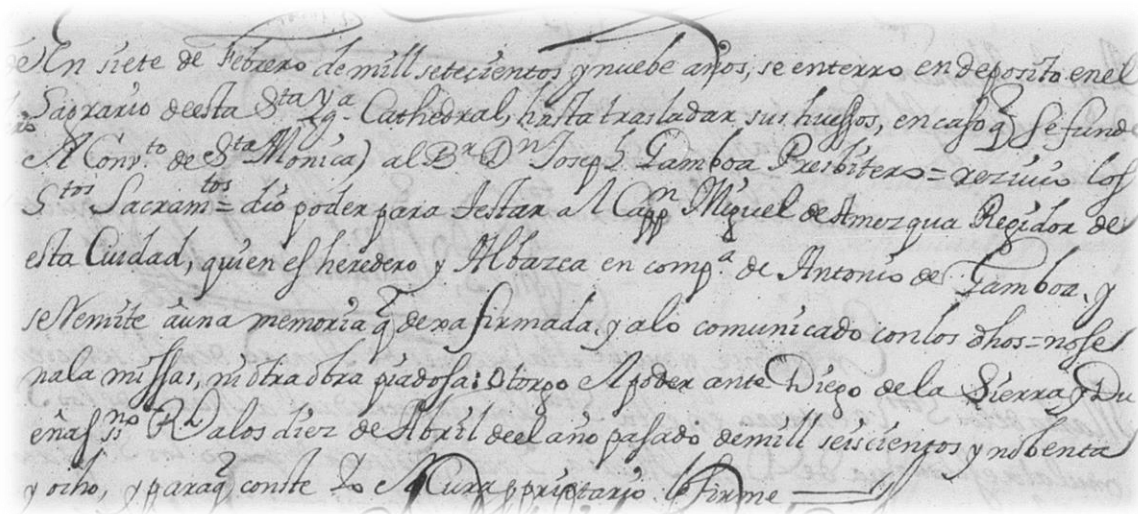 En siete de Febrero de mill setecientos y nuebe años, se enterro en deposito en el
Sagrario de esta Sta Yga Cathedral, hasta trasladar sus huessos, en caso q se fund
el Convto de Sta Monica) al Br Dn Joseph Gamboa Presbitero = reziuio los
Stos Sacramtos = dio poder para testar al Cappn Miguel de Amezqua Regidor de
esta Cuidad, quien es heredero y Albazea en compa de Antonio de Gamboa, y
se Remite à una memoria q dexa firmada, y a lo comunicado con los dhos = no se
ñala missas, ni otra obra piadosa: Otorgo el poder ante Diego de la Sierra y Du
eñas ssno Rl a los diez de Abril de el año pasado de mill seiscientos y nobenta
y ocho, y para q conste Yo el Cura pprietario lo firme